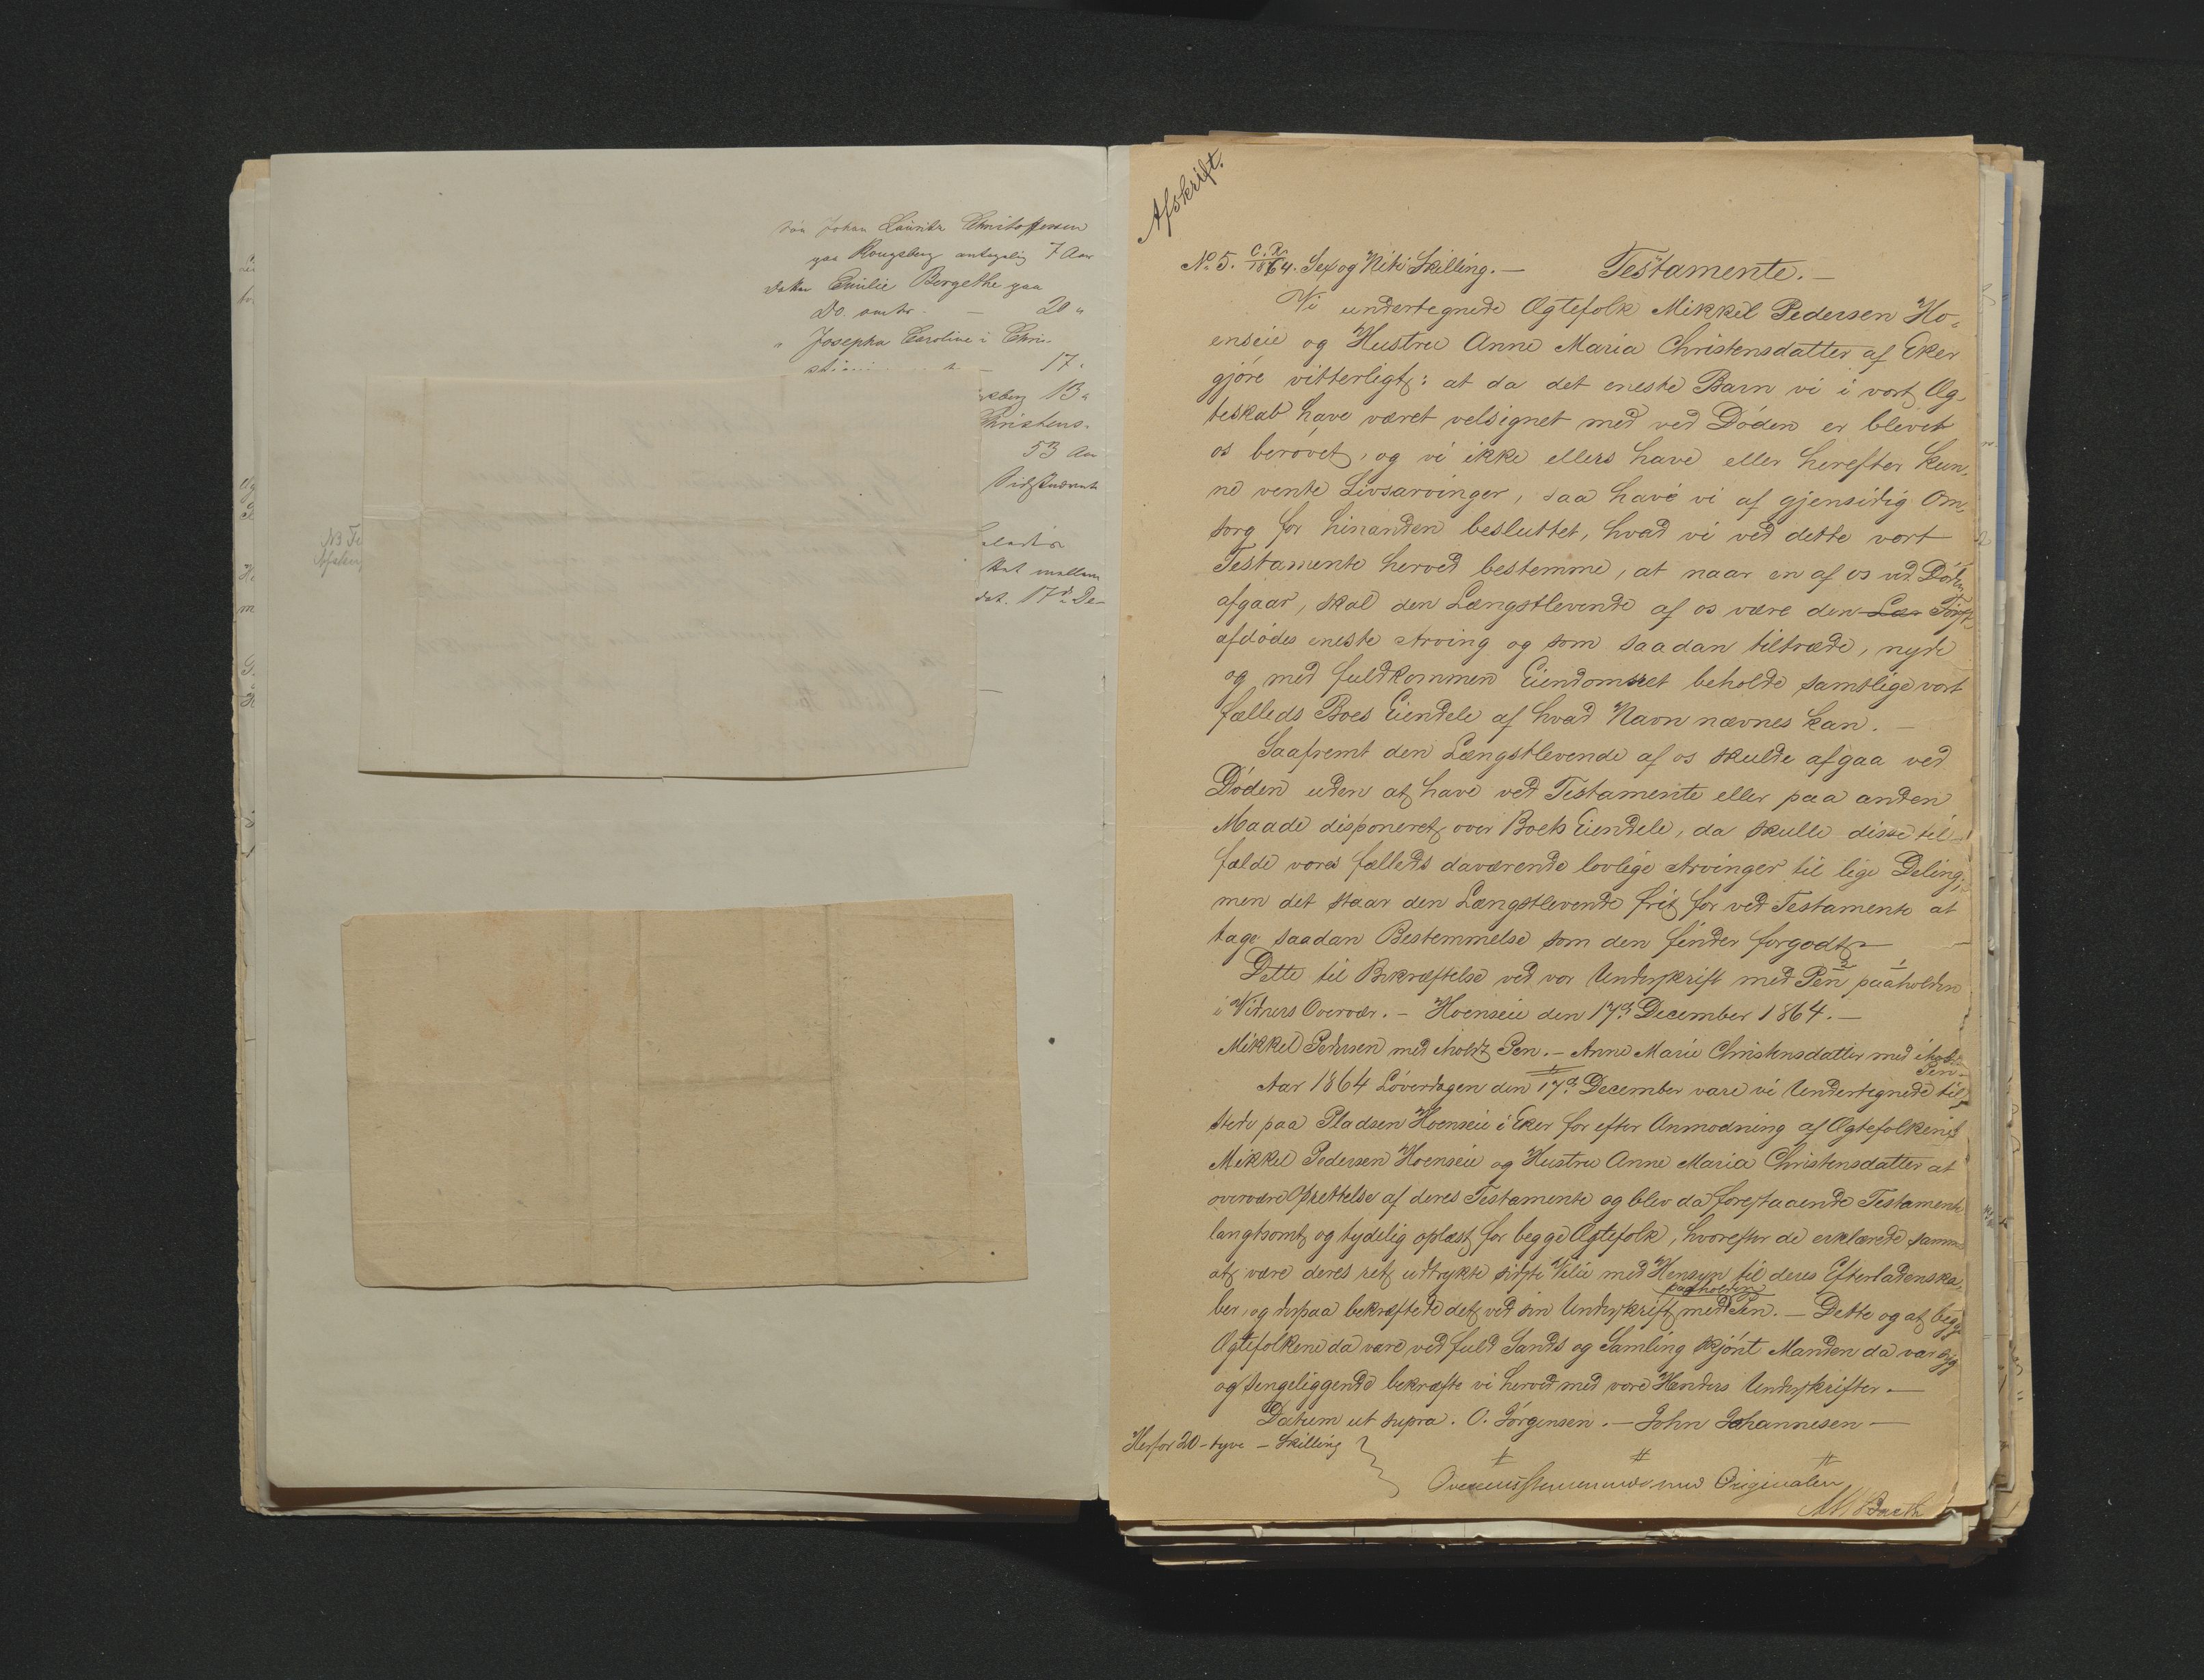 søn Johan Lauritz Christoffersen
paa Kongsberg antagelig 7 Aar
datter Emilie Bergethe paa
Do omtr. — 20 "
" Josepha Caroline i Chri-
17 "
sberg 13 "
Christens.
53 Aar
det. 17d De-
Afskrift.
No 5. C. R. 1864. Sex og Niti Skilling. — Testamente. —
Vi undertegnede Ægtefolk Mikkel Pedersen Ho-
enseie og Hustru Anne Maria Christensdatter af Eker
gjøre vitterligt: at da det eneste Barn vi i vort Æg-
teskab have været velsignet med ved Døden er blevet
os berøvet, og vi ikke ellers have eller herefter kun-
ne vente Livsarvinger, saa have vi af gjensidig Om-
sorg for hinanden besluttet, hvad vi ved dette vort
Testamente herved bestemme, at naar en af os ved Døden
afgaar, skal den Længstlevende af os være den Læn Først
afdødes eneste Arving og som saadan tiltræde, nyde
og med fuldkommen Eiendomsret beholde samtlige vort
fælleds Boes Eiendele af hvad Navn nævnes kan. —
Saafremt den Længstlevende af os skulde afgaa ved
Døden uden at have ved Testamente eller paa anden
Maade disponeret over Boets Eiendele, da skulle disse til-
falde vores fælleds daværende lovlige Arvinger til lige Deling;
men det staar den Længstlevende frit for ved Testamente at
tage saadan Bestemmelse som den finder forgodt. —
Dette til Bekræftelse ved vor Underskrift med Pen 2 paaholden 1
i Vidners Overvær. — Hoenseie den 17d December 1864. —
Mikkel Pedersen med iholdt Pen. — Anne Marie Christensdatter med iholdt
Pen. —
Aar 1864 Løverdagen den 17d December vare vi Undertegnede til-
stede paa Pladsen Hoenseie i Eker for efter Anmodning af Ægtefolkene
Mikkel Pedersen Hoenseie og Hustru Anne Maria Christensdatter at
overvære Oprettelse af deres Testamente og blev da forestaaende Testamente
langtsomt og tydelig oplæst for begge Ægtefolk, hvorefter de erklærede samme
at være deres ret udtrykte sidste Vilie med Hensyn til deres Efterladenska-
ber, og derpaa bekræftede det ved sin Underskrift med paaholden Pen. — Dette og at begge
Ægtefolkene da vare ved fuld Sands og Samling skjønt Manden da var syg
og sengeliggende bekræfte vi herved med vore Hænders Underskrifter. —
Datum ut supra. O. Jørgensen. — John Johannesen —
Herfor 20 - tyve - Skilling
Overensstemmende med Originalen
Barth